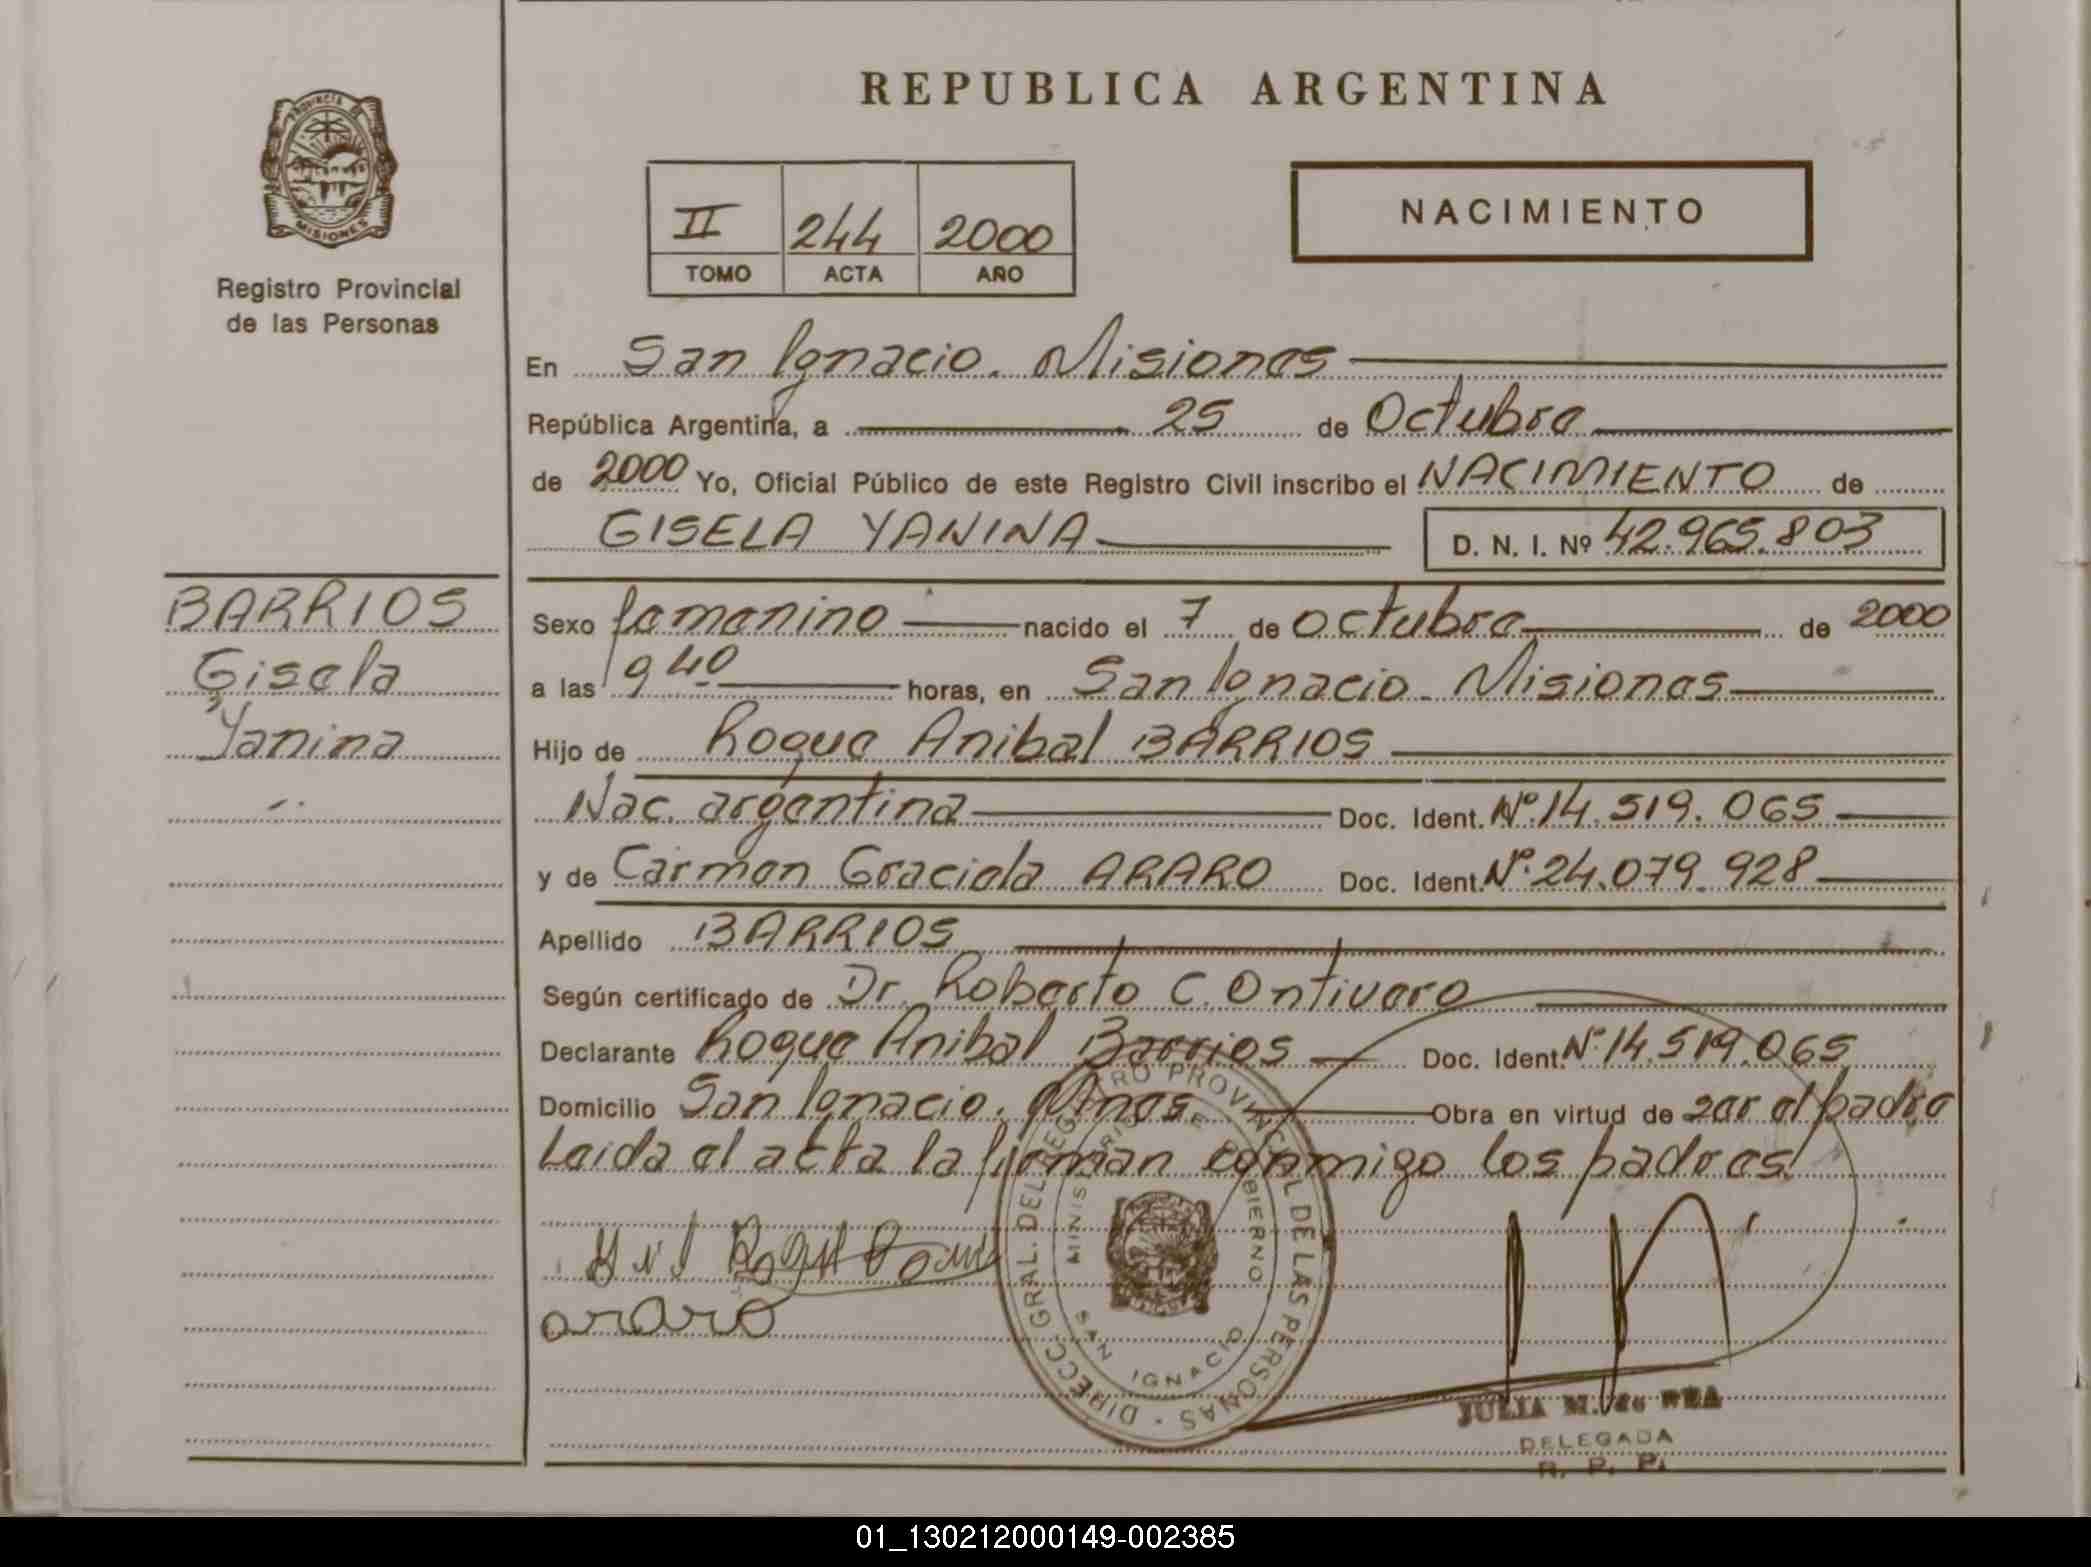 REPUBLICA ARGENTINA
PROVINCIA DE
MISIONES
Registro Provincial
de las Personas
II 244 2000
TOMO ACTA AÑO
NACIMIENTO
En San Ignacio. Misiones
República Argentina, a 25 de Octubre
de 2000 Yo, Oficial Público de este Registro Civil inscribo el NACIMIENTO de
GISELA YANINA D. N. I. Nº 42.965.803
BARRIOS
Gisela
Yanina
Sexo femenino nacido el 7 de octubre de 2000
a las 9 40 horas, en San Ignacio - Misiones
Hijo de Roque Anibal BARRIOS
Nac. argentina Doc. Ident. Nº 14.519.065
y de Carmen Graciela ARARO Doc. Ident. Nº 24.079.928
Apellido BARRIOS
Según certificado de Dr. Roberto C. Ontivero
Declarante Roque Anibal Barrios Doc. Ident. Nº 14.519.065
Domicilio San Ignacio. Mnes Obra en virtud de ser el padre
Leida el acta la firman conmigo los padres
araro
DIRECC. GRAL. DEL REGISTRO PROVINCIAL DE LAS PERSONAS
MINISTERIO DE GOBIERNO
SAN IGNACIO
JULIA M. de
DELEGADA
R. P. P.
01_130212000149-002385